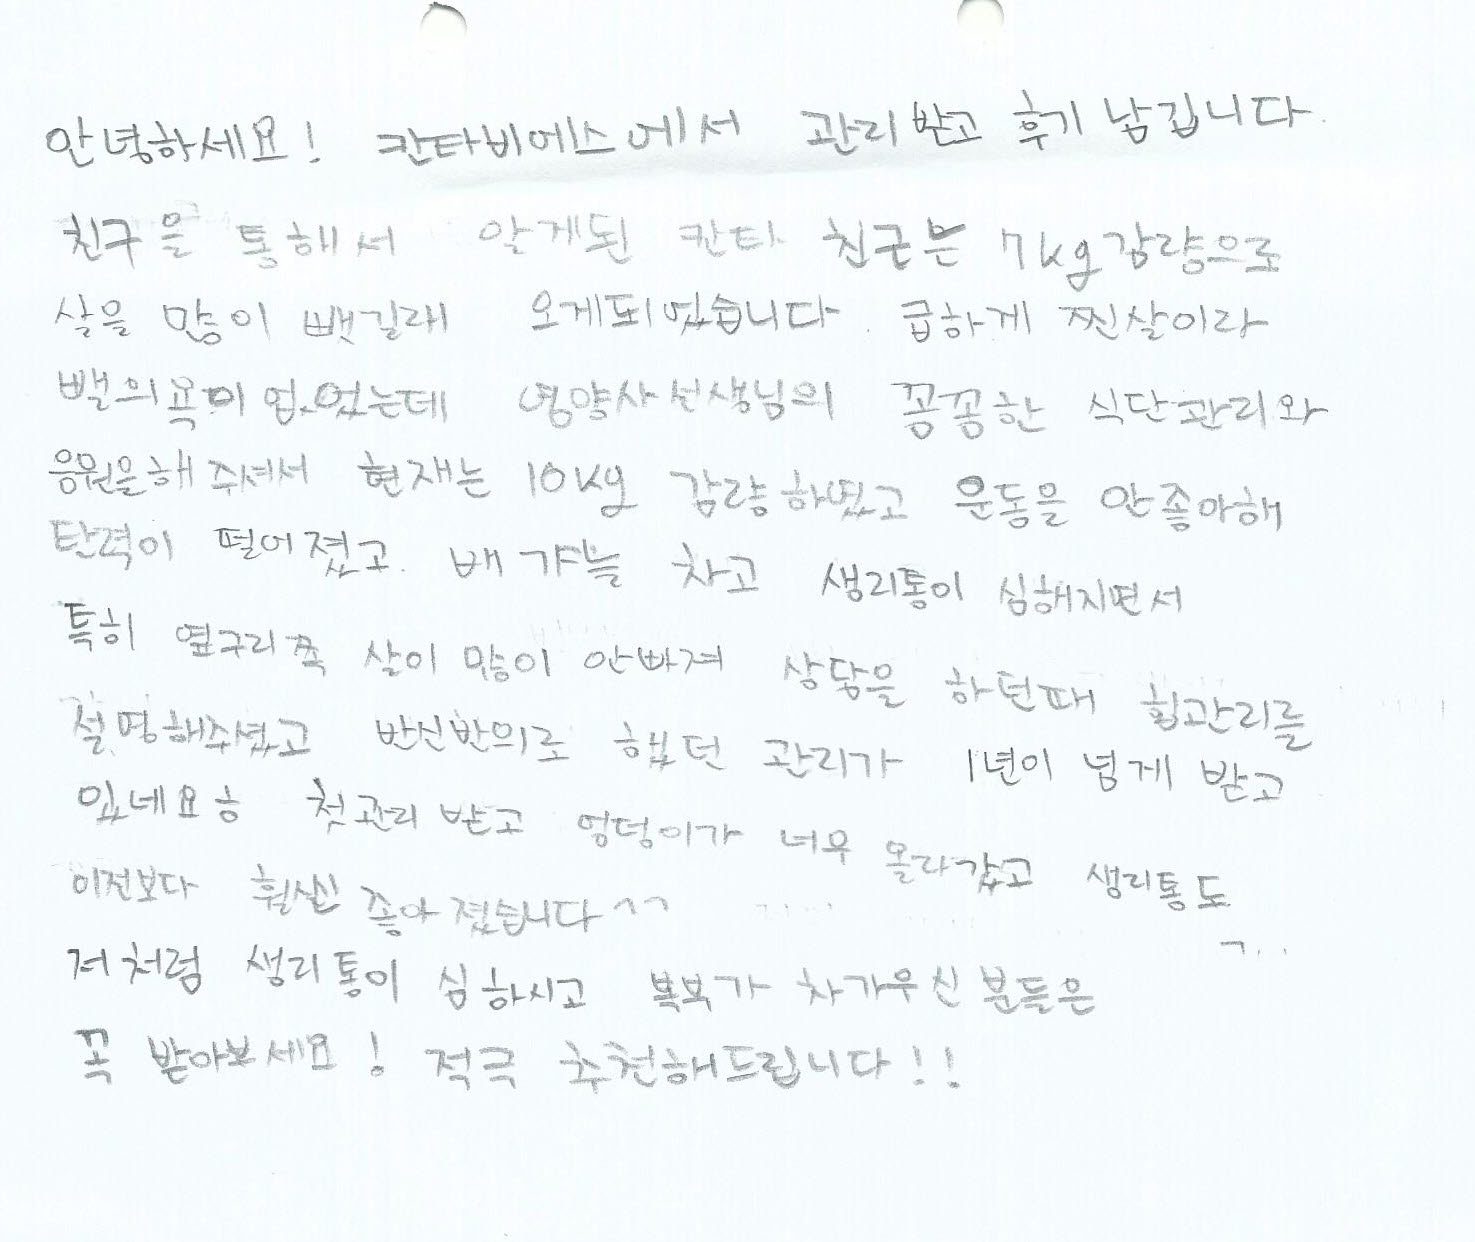 안녕하세요! 칸타비에스에서 관리 받고 후기 남깁니다.
친구을 통해서 알게된 칸타 친구는 7kg감량으로
살을 많이 뺏길래 오게되었습니다. 급하게 찐살이라
뺄의욕이 없었는데 영양사선생님의 꼼꼼한 식단관리와
응원을해주셔서 현재는 10kg 감량하였고 운동을 안좋아해
탄력이 떨어졌고. 배 갸늘 차고 생리통이 심해지면서
특히 옆구리쪽 살이 많이 안빠져 상담을 하던때 힙관리를
설명해주셨고 반신반의로 했던 관리가 1년이 넘게 받고
있네요ㅎ 첫관리 받고 엉덩이가 너무 올라갔고 생리통도
이전보다 훨신 좋아졌습니다^^
저처럼 생리통이 심하시고 복부가 차가우신분들은
꼭 받아보세요! 적극 추천해드립니다!!